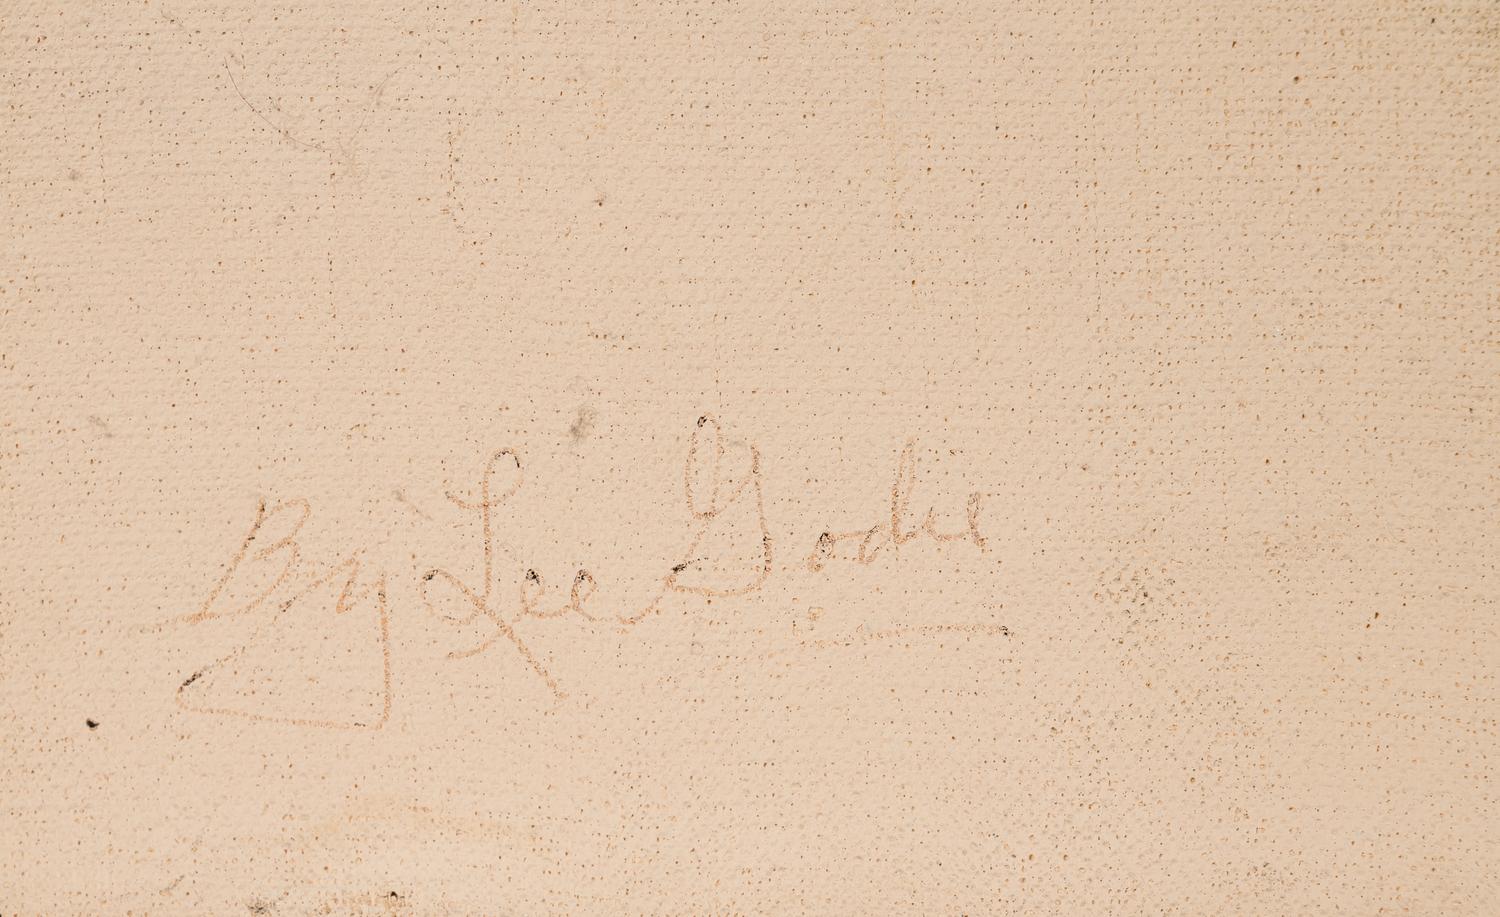 By Lee Godie